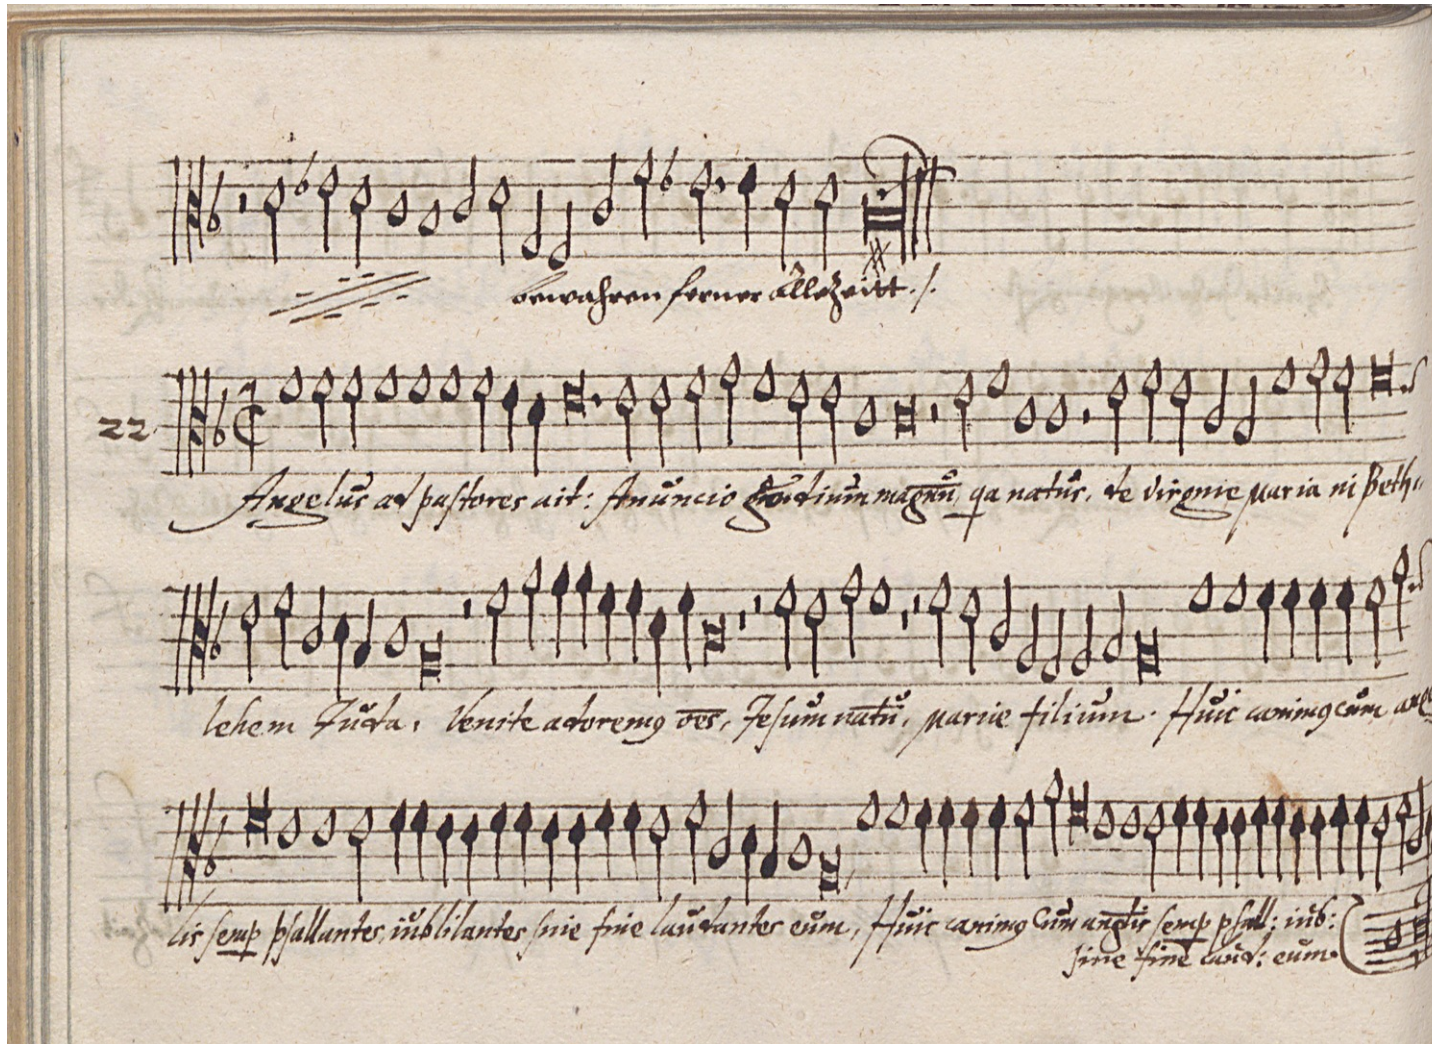 bewahren ferner allezeitt ./.
22.
Angelus ad pastores ait: Anuncio gaudium magnū qa natus, de virgnie Maria ni Beth„
lehem Juda, Venite adoremq oēs, Jesum natū, Mariie filium. Huic canimq cum ange
lis semp psallantes, iublilantes snie fine laudantes eum, Huic canimq Cum anglis semp psall: iub:
sine fine laud: eum